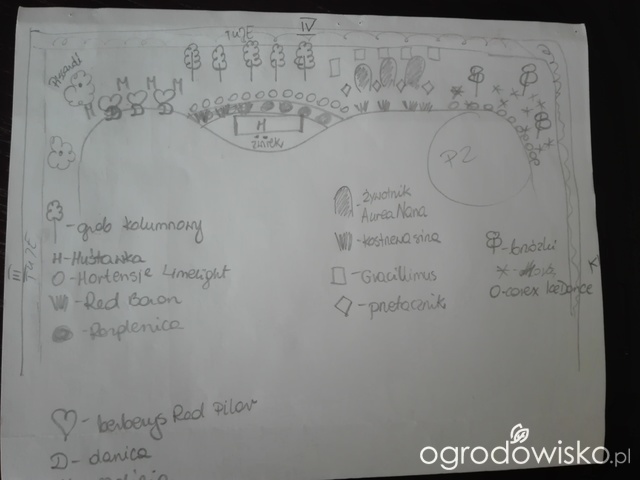 IV
TUJE
M
M
M
M
H
D
D
D
H
żwirek
PZ
III
TUJE
V
- grab kolumnowy
H - Huśtawka
O - Hortensje Limelight
- Red Baron
- Rozplenica
- żywotnik
Aurea Nana
- kostrzewa sina
- Gracillimus
- przetacznik
- brzózki
O - carex IceDance
- berberys Red Pilar
D - danica
ogrodowisko.pl